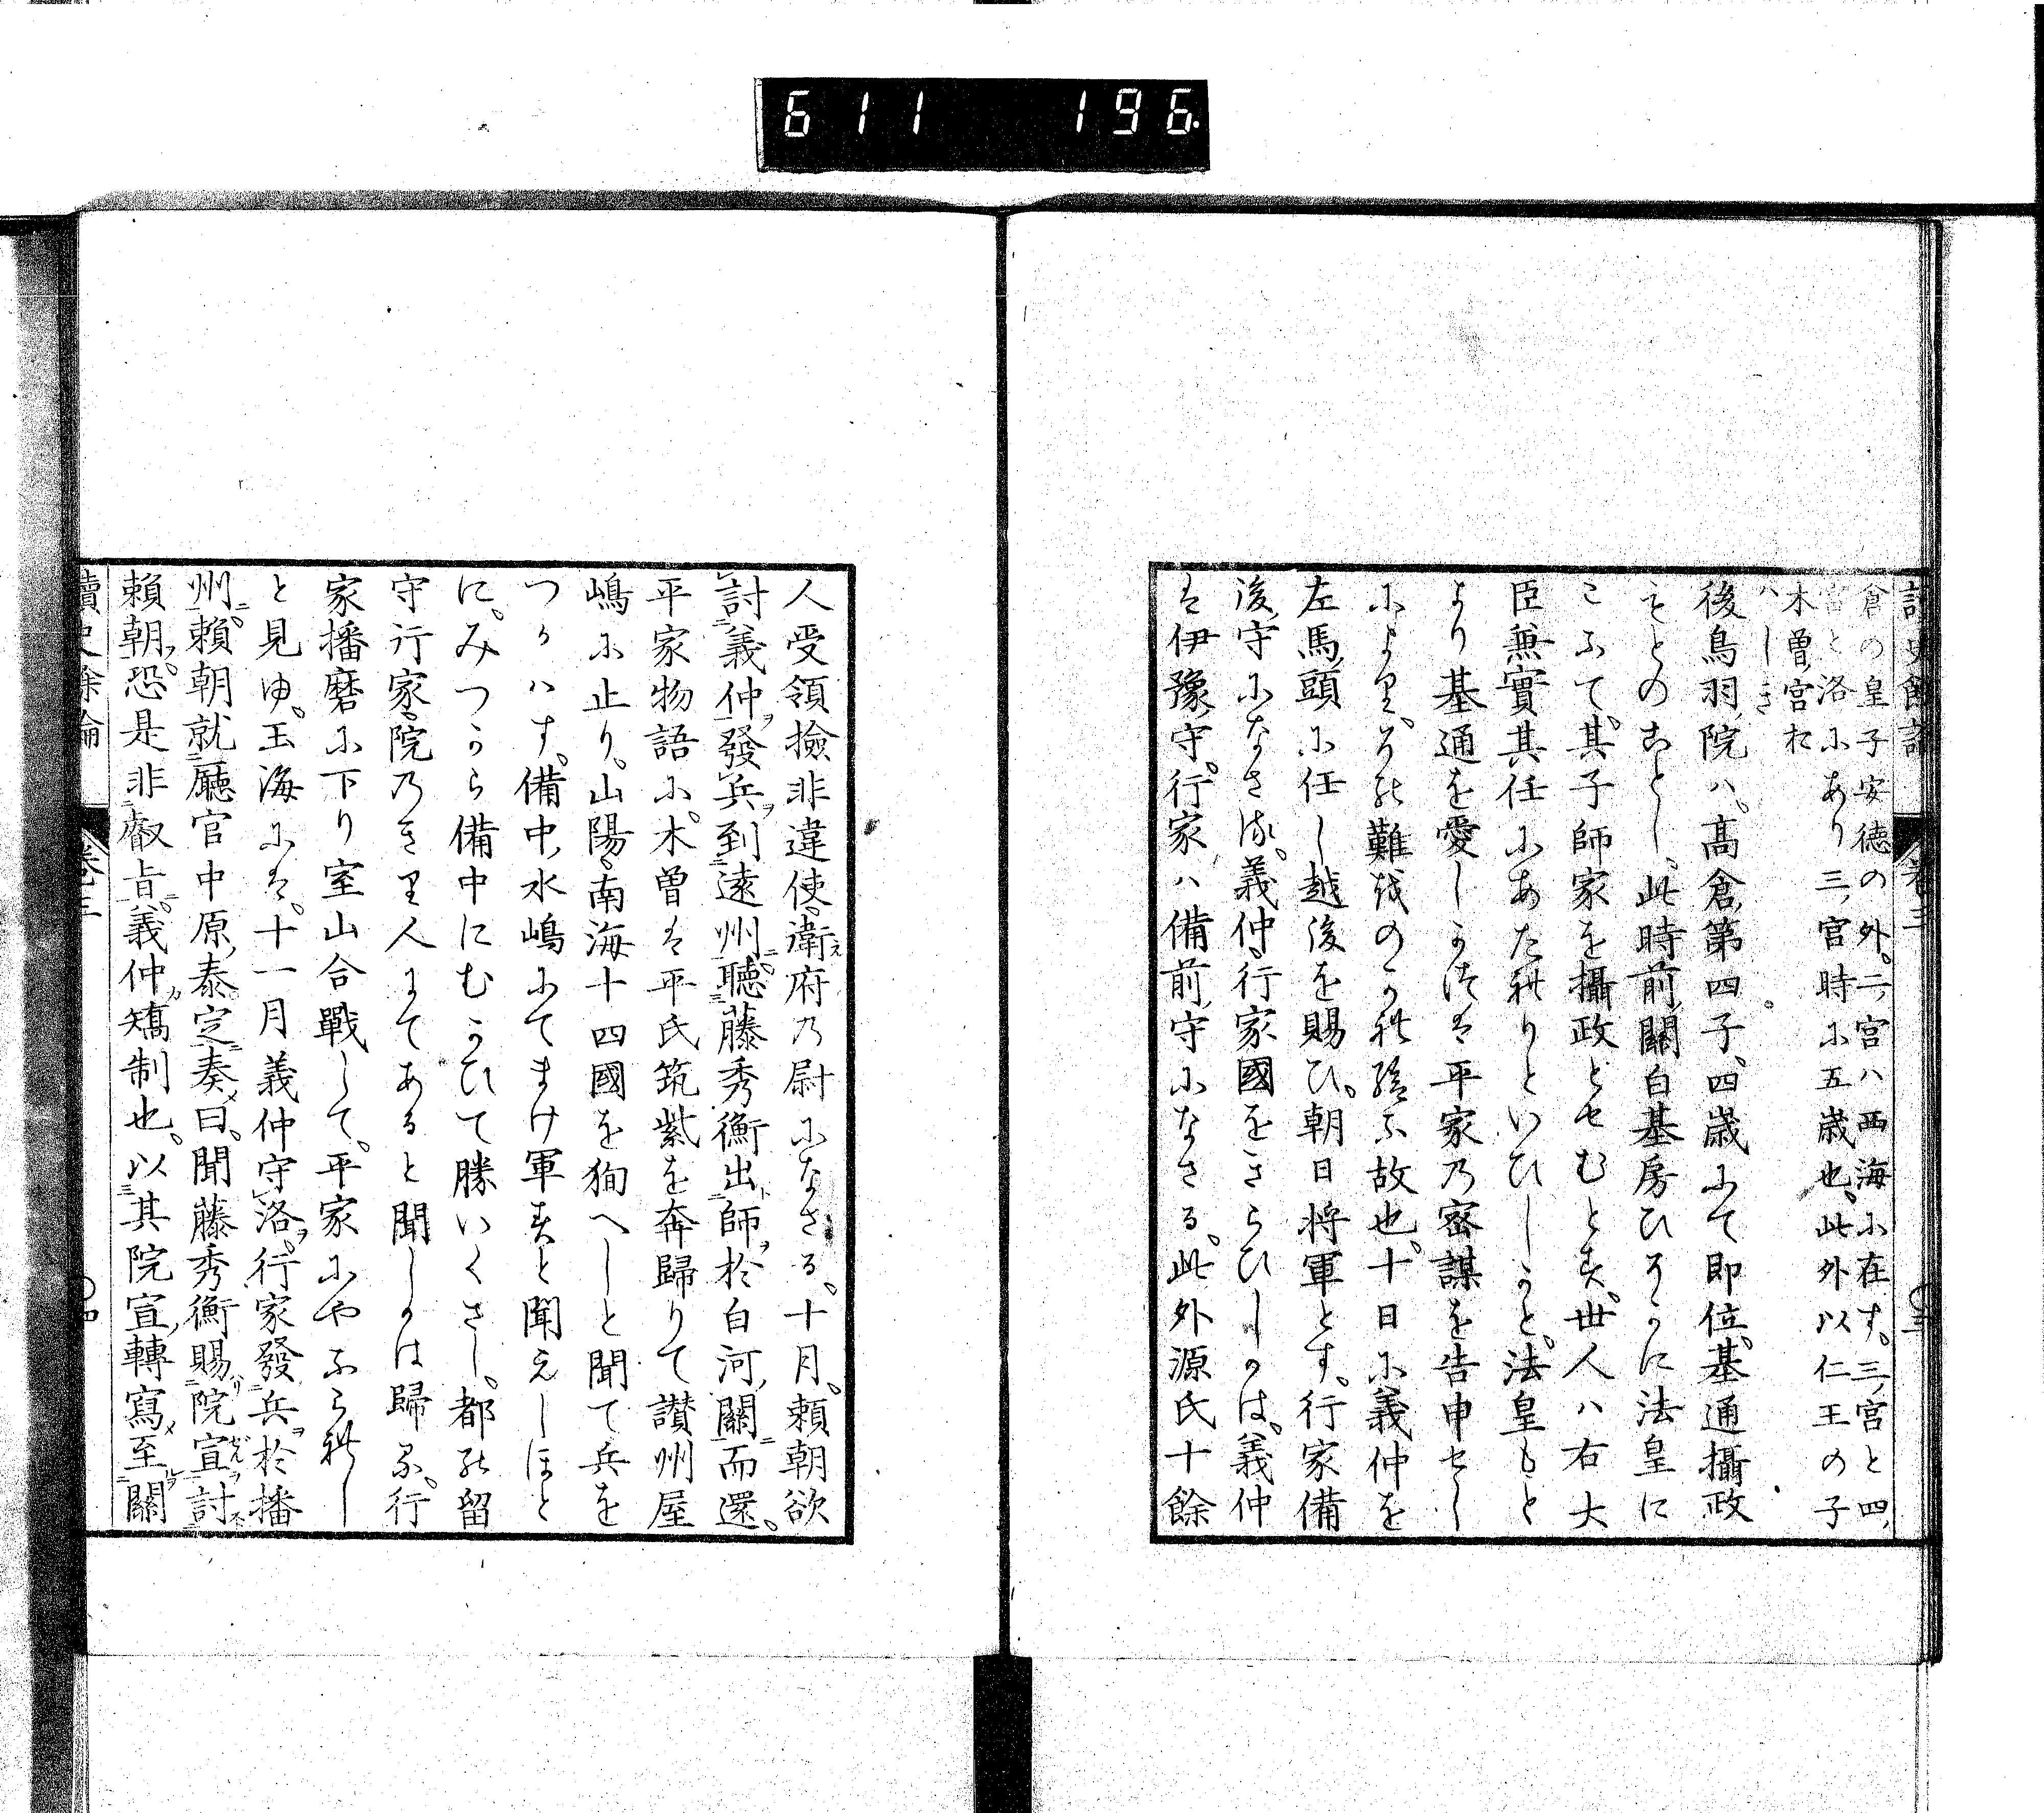 611 196.
倉の皇子安徳の外。二ノ宮ハ西海ふ在す。三ノ宮と四ノ
宮と洛ふあり三ノ宮時ふ五歳也、此外以仁王の子
木曽ノ宮お
ハしき
後鳥羽ノ院ハ。髙倉ノ第四子。四歳ふて即位。基通攝政
もとのことし。此時前ノ關白基房ひそかに法皇に
こふて。其子師家を攝政とせむとす。世人ハ右大
臣兼實其任ふあたれりといひしかと。法皇もと
より基通を愛しかつは平家乃密謀を告申せし
ふより。其難をのかれ給ふ故也。十日ふ義仲を
左馬ノ頭ふ任し越後を賜ひ。朝日将軍とす。行家備
後ノ守ふなさる。義仲、行家國をきらひしかは。義仲
は伊豫ノ守。行家ハ備前ノ守ふなさる。此外源氏十餘
人受領撿非違使。衞府乃尉ふなさる。十月。頼朝欲
討義仲。發兵到遠州。聴藤秀衡出師於白河ノ關而還。
平家物語ふ。木曽は平氏筑紫を奔歸りて讃州屋
嶋ふ止り。山陽、南海十四國を狥へしと聞て兵を
つかハす。備中ノ水嶋ふてまけ軍すと聞えしほと
に。みつから備中にむかひて勝いくさし。都の留
守行家、院乃きり人にてあると聞しかは歸る。行
家播磨ふ下り室山合戰して。平家ふやふられし
と見ゆ。玉海ふは。十一月義仲守洛。行家發兵於播
州。頼朝就廳官中原ノ泰定奏曰。聞藤秀衡賜院宣討
頼朝。恐是非叡旨。義仲矯制也。以其院宣轉寫至關
讀史餘論 卷三